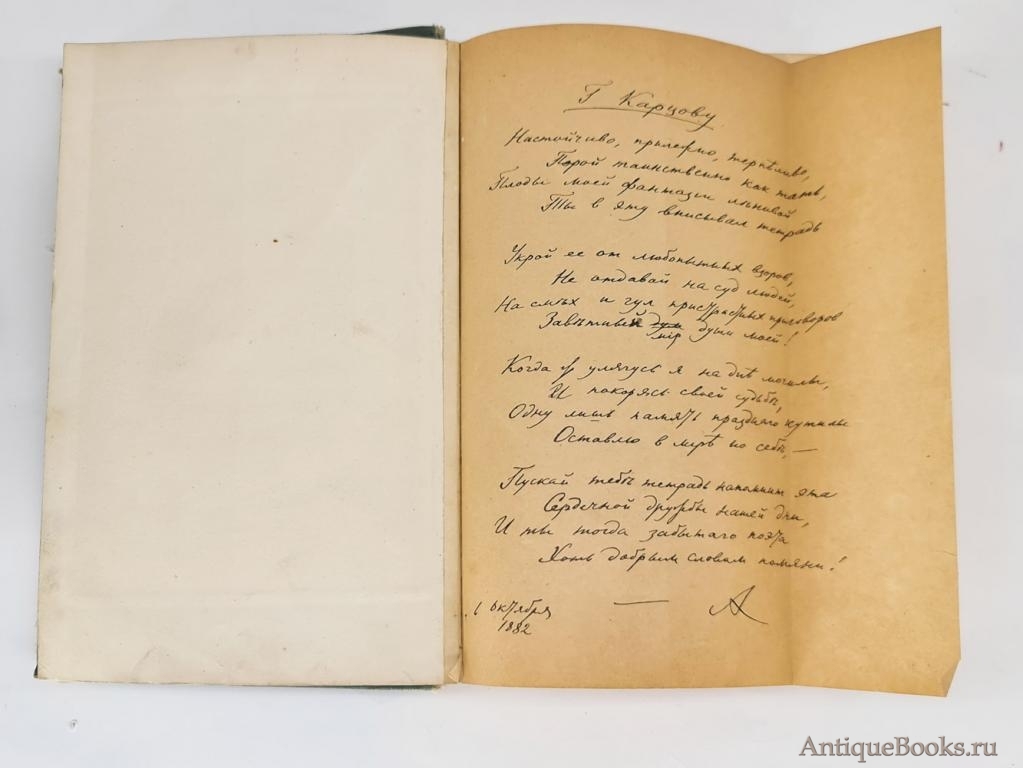 Г Карцову
Настойчиво, прилежно, терпѣливо,
Порой таинственно как тать,
Плоды моей фантазии лѣнивой
Ты в эту вписывал тетрадь
Укрой ее от любопытных взоров,
Не отдавай на суд людей,
На смѣх и гул пристрастных приговоров
Завѣтный дум души моей!
мір
Когда улягусь я на днѣ могилы,
И покорясь своей судьбѣ,
Одну лишь память праздного кутилы
Оставлю в мірѣ по себѣ, —
Пускай тебѣ тетрадь напомнит эта
Сердечной дружбы нашей дни,
И ты тогда забытаго поэта
Хоть добрым словом помяни!
— А
1 Октября
1882
AntiqueBooks.ru